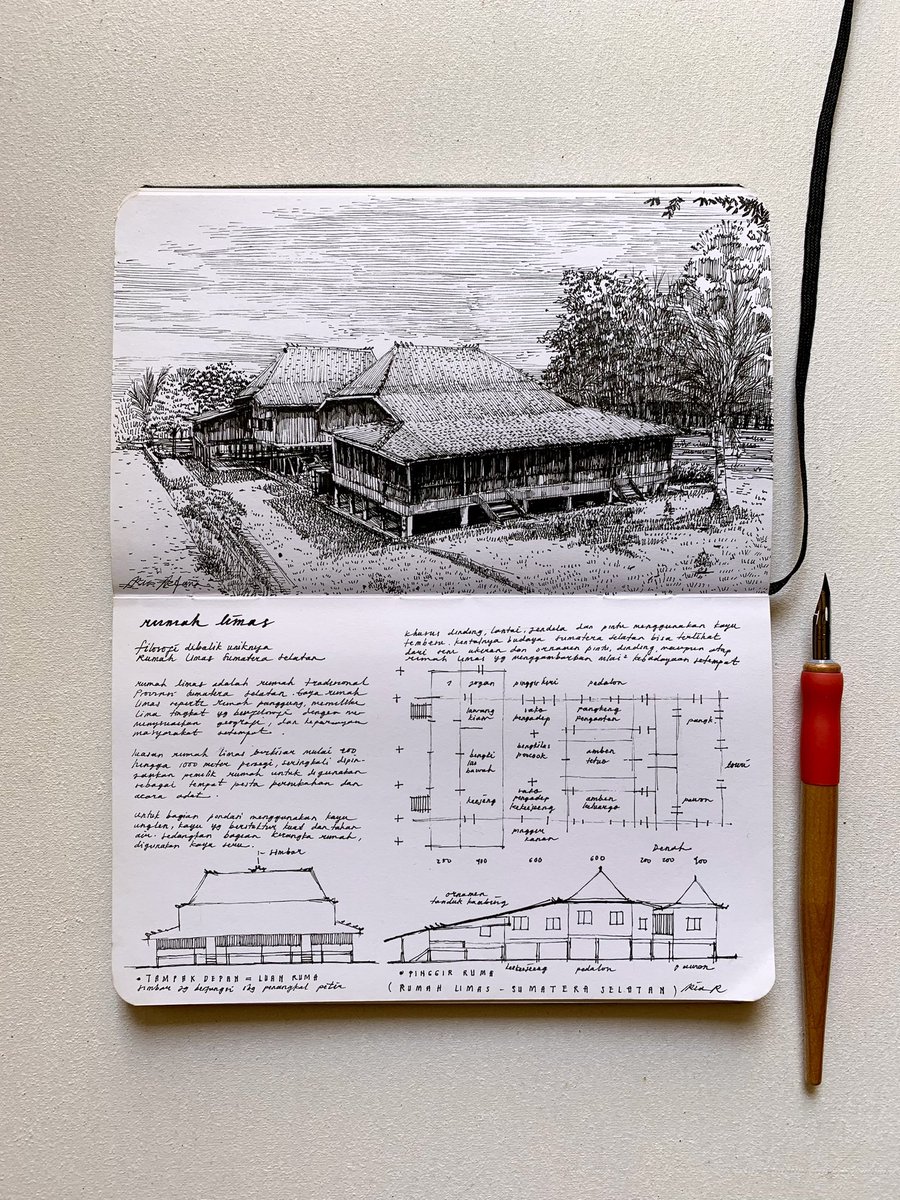 rumah limas
filosofi dibalik uniknya
Rumah Limas Sumatera Selatan
rumah limas adalah rumah tradisional
Provinsi Sumatera Selatan. Gaya rumah
limas seperti rumah panggung, memiliki
lima tingkat yg bersebelahan dengan
menyesuaikan geografi, dan kepercayaan
masyarakat setempat.
luasan rumah limas berkisar mulai 400
hingga 1000 meter persegi, seringkali dipin-
jamkan pemilik rumah untuk digunakan
sebagai tempat pesta pernikahan dan
acara adat.
untuk bagian pondasi menggunakan kayu
unglen, kayu yg berstruktur kuat dan tahan
air. sedangkan bagian kerangka rumah,
digunakan kayu seru.
khusus dinding, lantai, jendela dan pintu menggunakan kayu
tembesu. kentalnya budaya sumatera selatan bisa terlihat
dari seni ukiran dan ornamen pintu, dinding, maupun atap
rumah limas yg menggambarkan nilai² kebudayaan setempat
jogan
pinggir kiri
padalon
lawang
kiam
sako
pengadep
pangkeng
penganten
pangk
bengki
las
bawah
bengkilas
pucuok
amben
tetuo
keejeng
sako
pengadep
kekejeng
amben
keluargo
pawon
pinggir
kanan
Denah
250
400
600
600
200
200
400
simbar
ornamen
tanduk kambing
kekejeng
padalon
pawon
* TAMPAK DEPAN = LUAN RUMA
simbar yg berfungsi sbg penangkal petir
* PINGGIR RUMA
( RUMAH LIMAS - SUMATERA SELATAN )